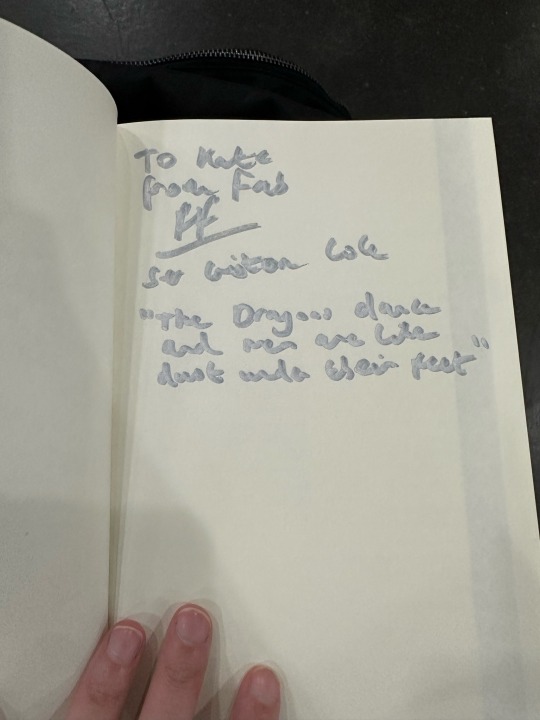 To Kate
from Fab
FF
Ser Criston Cole
"The Dragons dance
and men are like
dust under their feet"